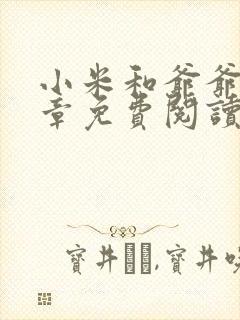 小米和爺爺
章免費閱讀
寶井,寶井